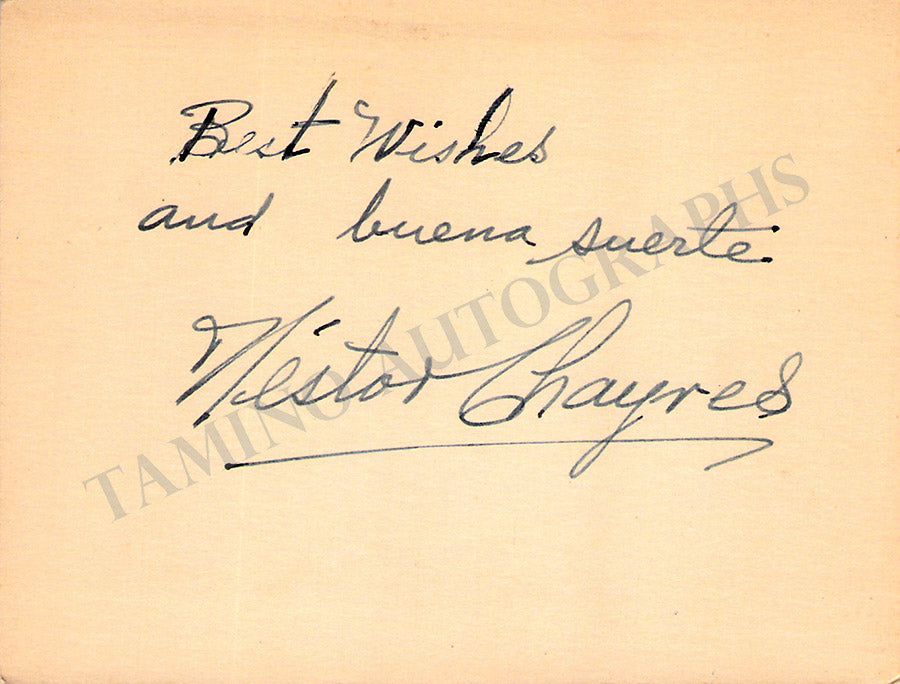 Best Wishes
and buena suerte
Néstor Chayres
TAMINO AUTOGRAPHS